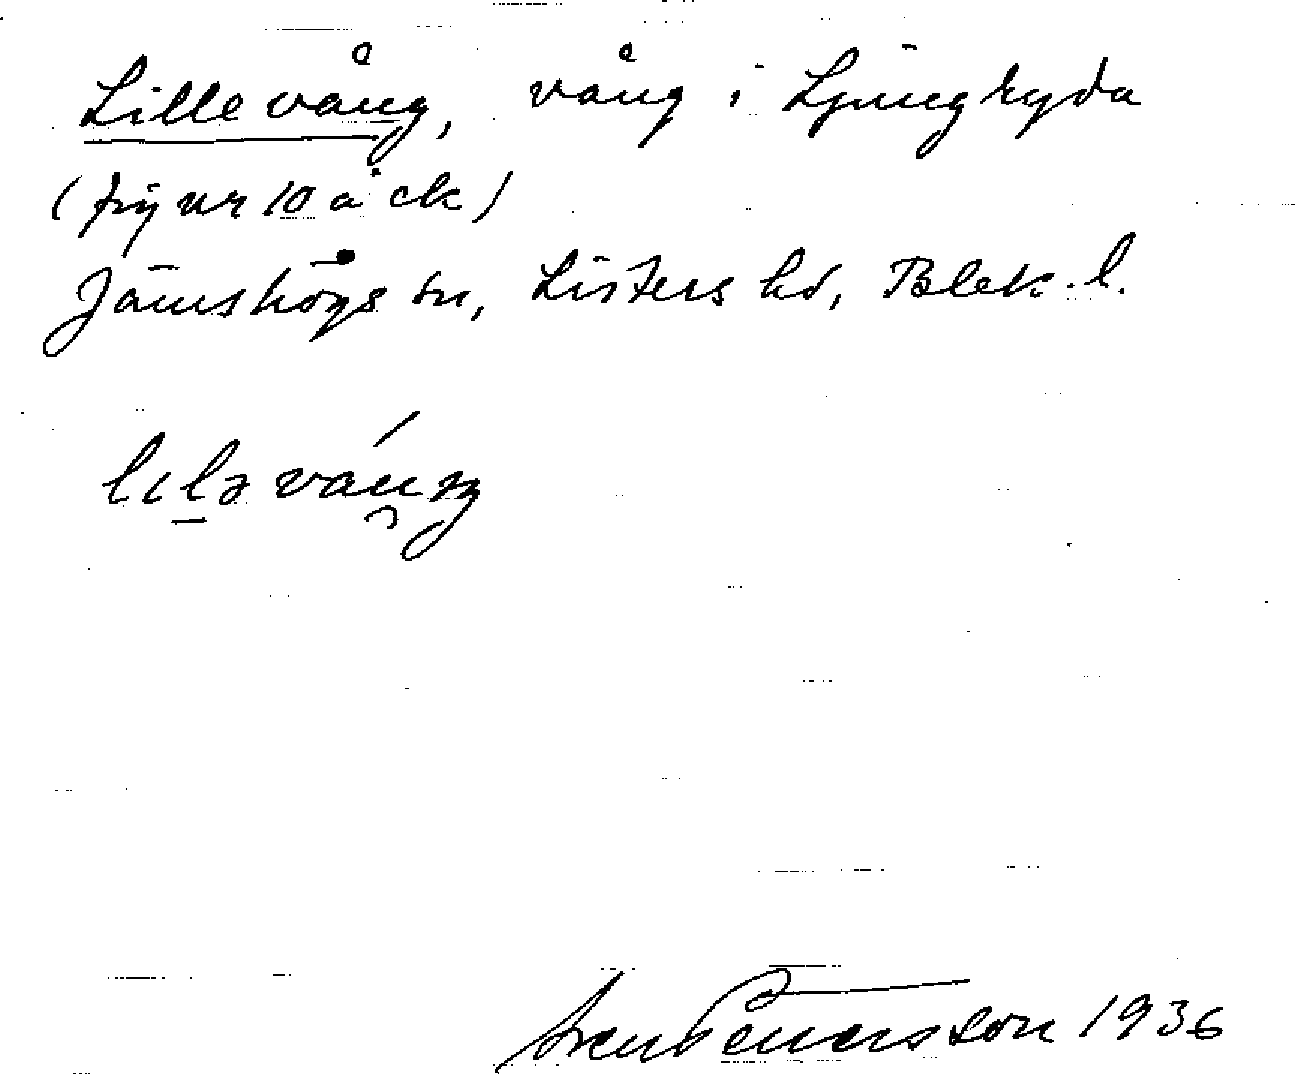 Lillevång, vång i Ljungryda
( nr 10 å ek)
Jämshögs sn, Listers hd, Blek. l.
Sven Pettersson 1936